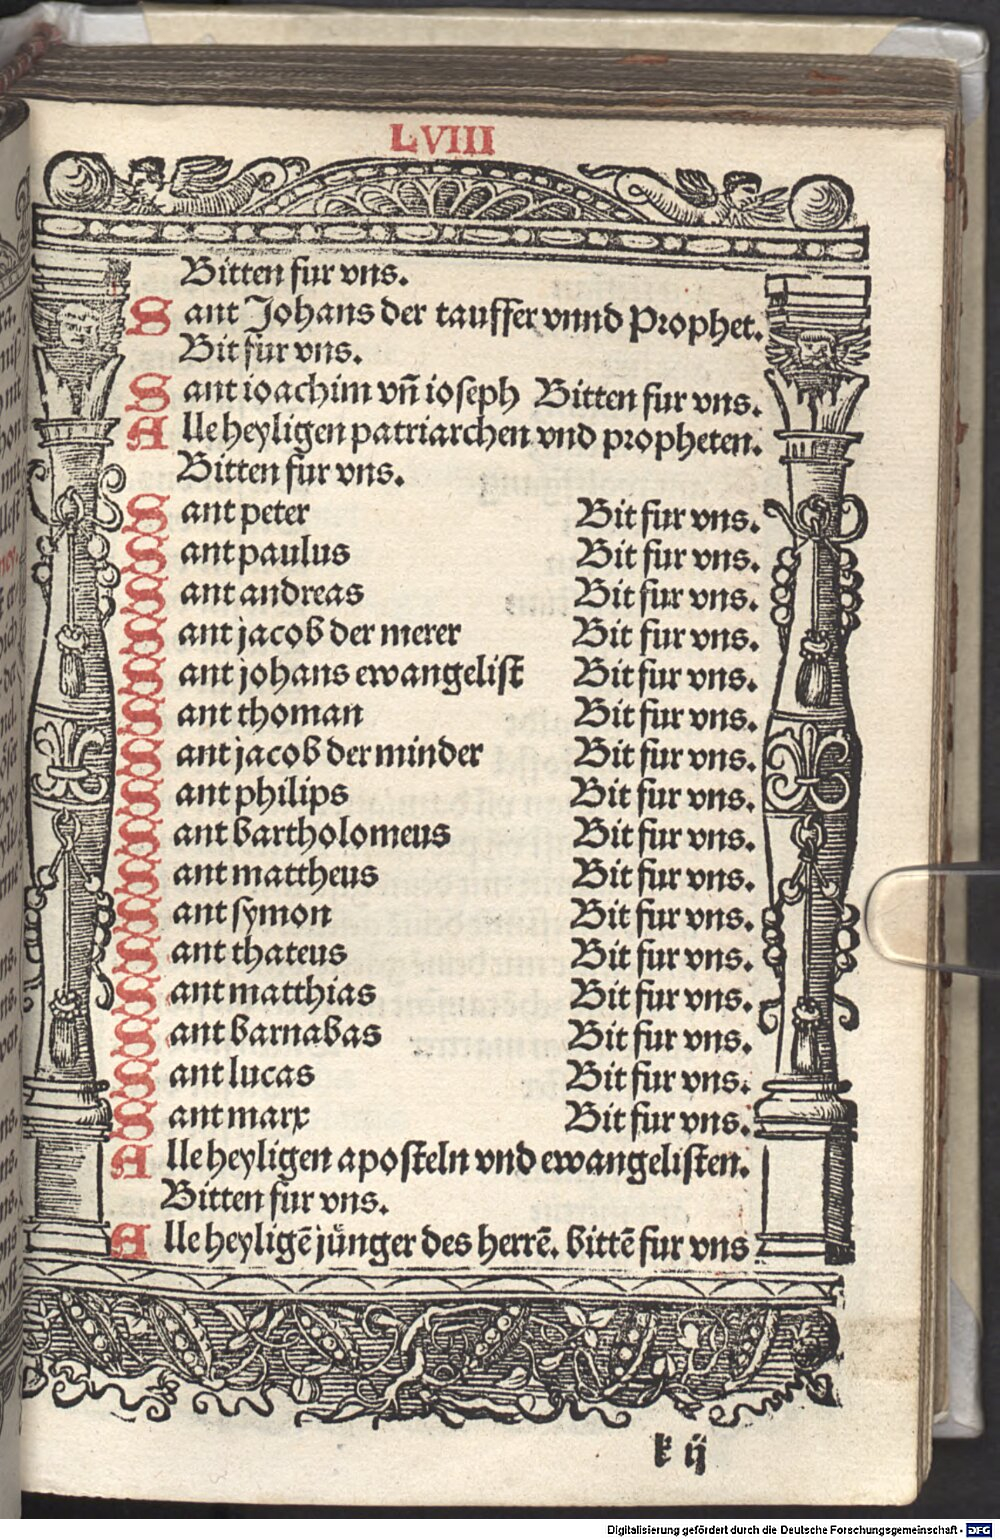 LVIII
Bitten fur vns.
Sant Johans der tauffer vnnd Prophet.
Bit fur vns.
Sant ioachim vn̄ ioseph Bitten fur vns.
Alle heyligen patriarchen vnd propheten.
Bitten fur vns.
Sant peter Bit fur vns.
Sant paulus Bit fur vns.
Sant andreas Bit fur vns.
Sant jacob der merer Bit fur vns.
Sant johans ewangelist Bit fur vns.
Sant thoman Bit fur vns.
Sant jacob der minder Bit fur vns.
Sant philips Bit fur vns.
Sant bartholomeus Bit fur vns.
Sant mattheus Bit fur vns.
Sant symon Bit fur vns.
Sant thateus Bit fur vns.
Sant matthias Bit fur vns.
Sant barnabas Bit fur vns.
Sant lucas Bit fur vns.
Sant marx Bit fur vns.
Alle heyligen aposteln vnd ewangelisten.
Bitten fur vns.
Alle heyligē jünger des herrē. bittē fur vns
k ij
Digitalisierung gefördert durch die Deutsche Forschungsgemeinschaft - DFG